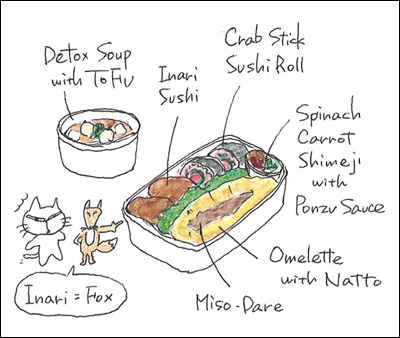 Detox Soup
with ToFu
Inari
Sushi
Crab Stick
Sushi Roll
Spinach
Carrot
Shimeji
with
Ponzu Sauce
Omelette
with Natto
Miso-Dare
Inari = Fox